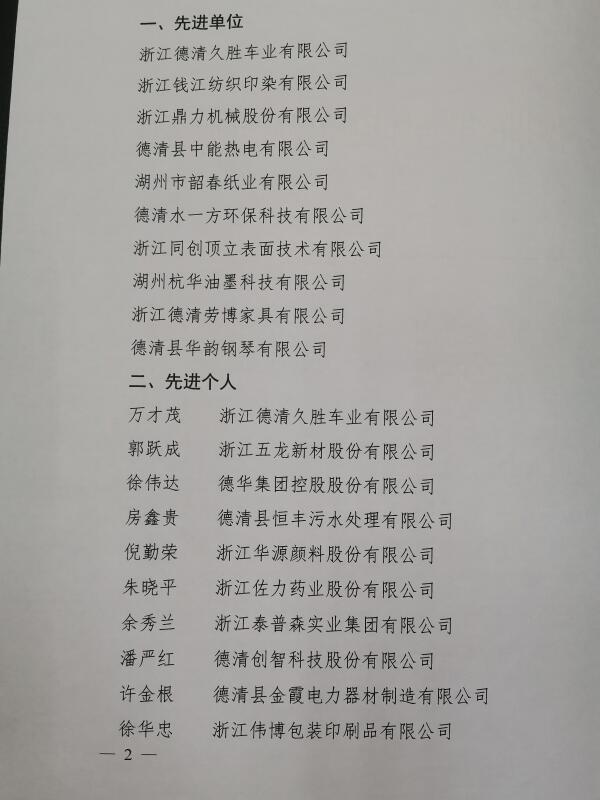 一、先进单位
浙江德清久胜车业有限公司
浙江钱江纺织印染有限公司
浙江鼎力机械股份有限公司
德清县中能热电有限公司
湖州市韶春纸业有限公司
德清水一方环保科技有限公司
浙江同创顶立表面技术有限公司
湖州杭华油墨科技有限公司
浙江德清劳博家具有限公司
德清县华韵钢琴有限公司
二、先进个人
万才茂 浙江德清久胜车业有限公司
郭跃成 浙江五龙新材股份有限公司
徐伟达 德华集团控股股份有限公司
房鑫贵 德清县恒丰污水处理有限公司
倪勤荣 浙江华源颜料股份有限公司
朱晓平 浙江佐力药业股份有限公司
余秀兰 浙江泰普森实业集团有限公司
潘严红 德清创智科技股份有限公司
许金根 德清县金霞电力器材制造有限公司
徐华忠 浙江伟博包装印刷品有限公司
— 2 —